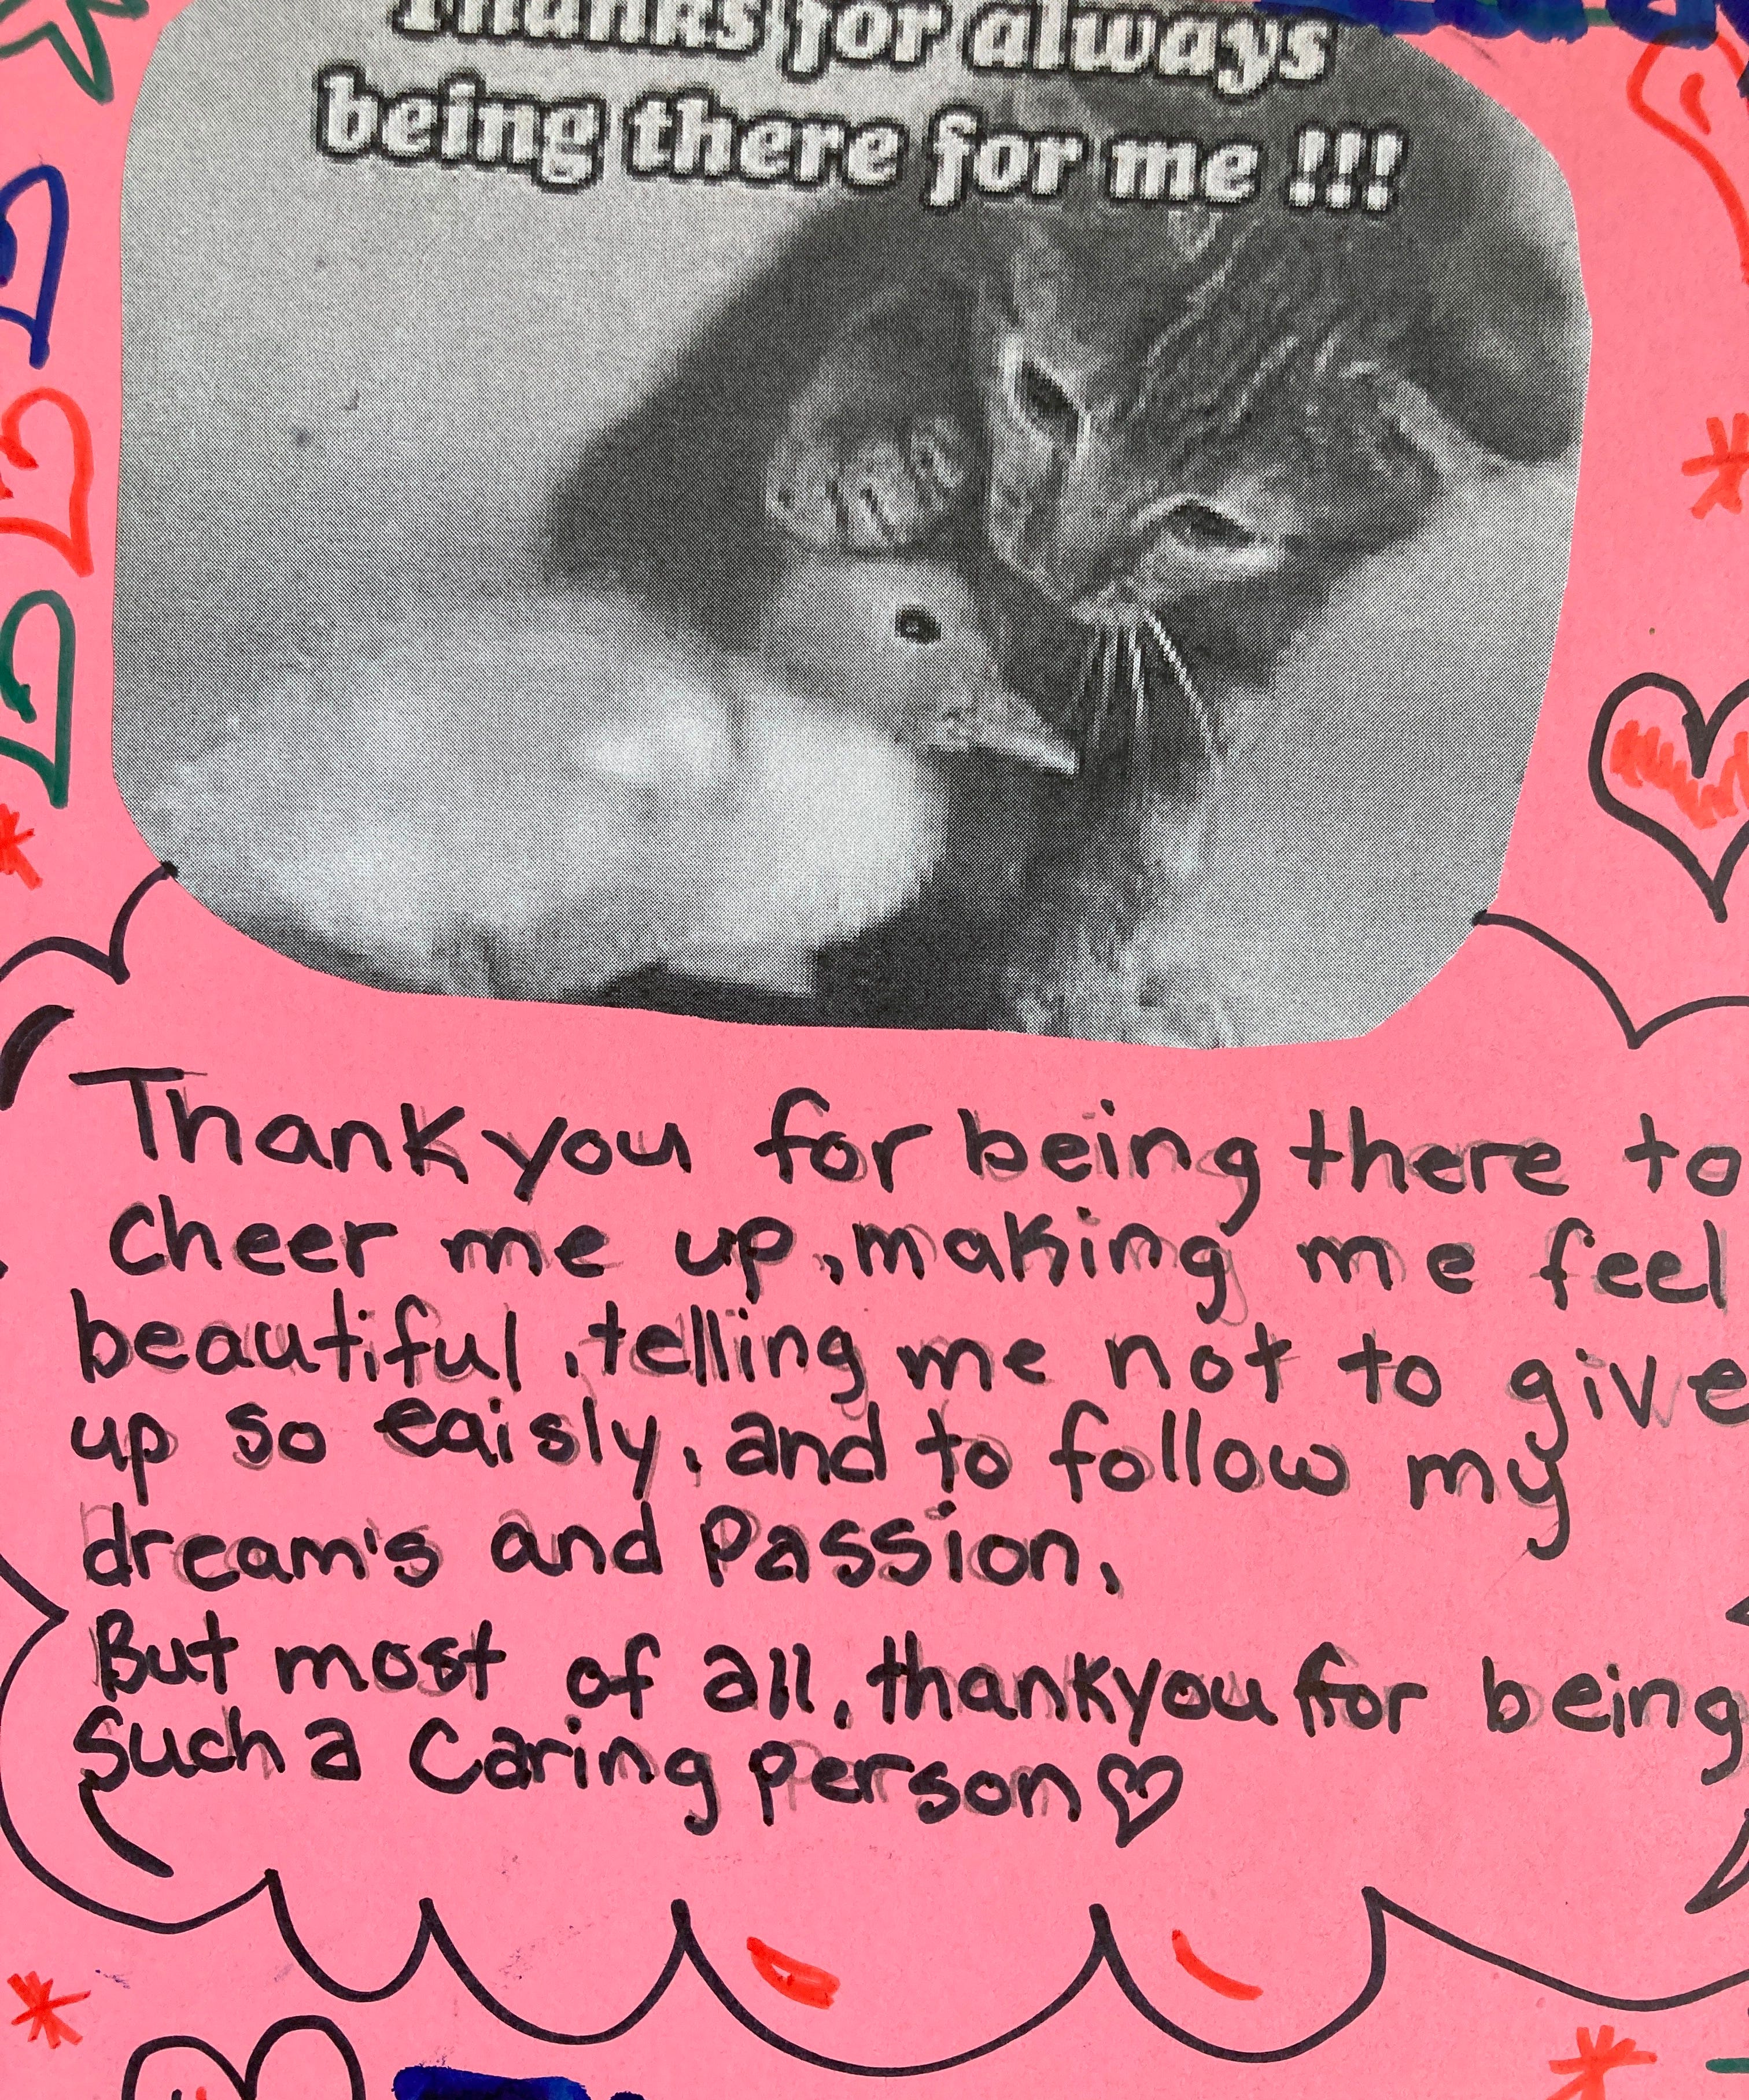 Thanks for always
being there for me !!!
Thank you for being there to
cheer me up, making me feel
beautiful, telling me not to give
up so eaisly, and to follow my
dream's and Passion,
But most of all, thankyou for being
such a Caring person